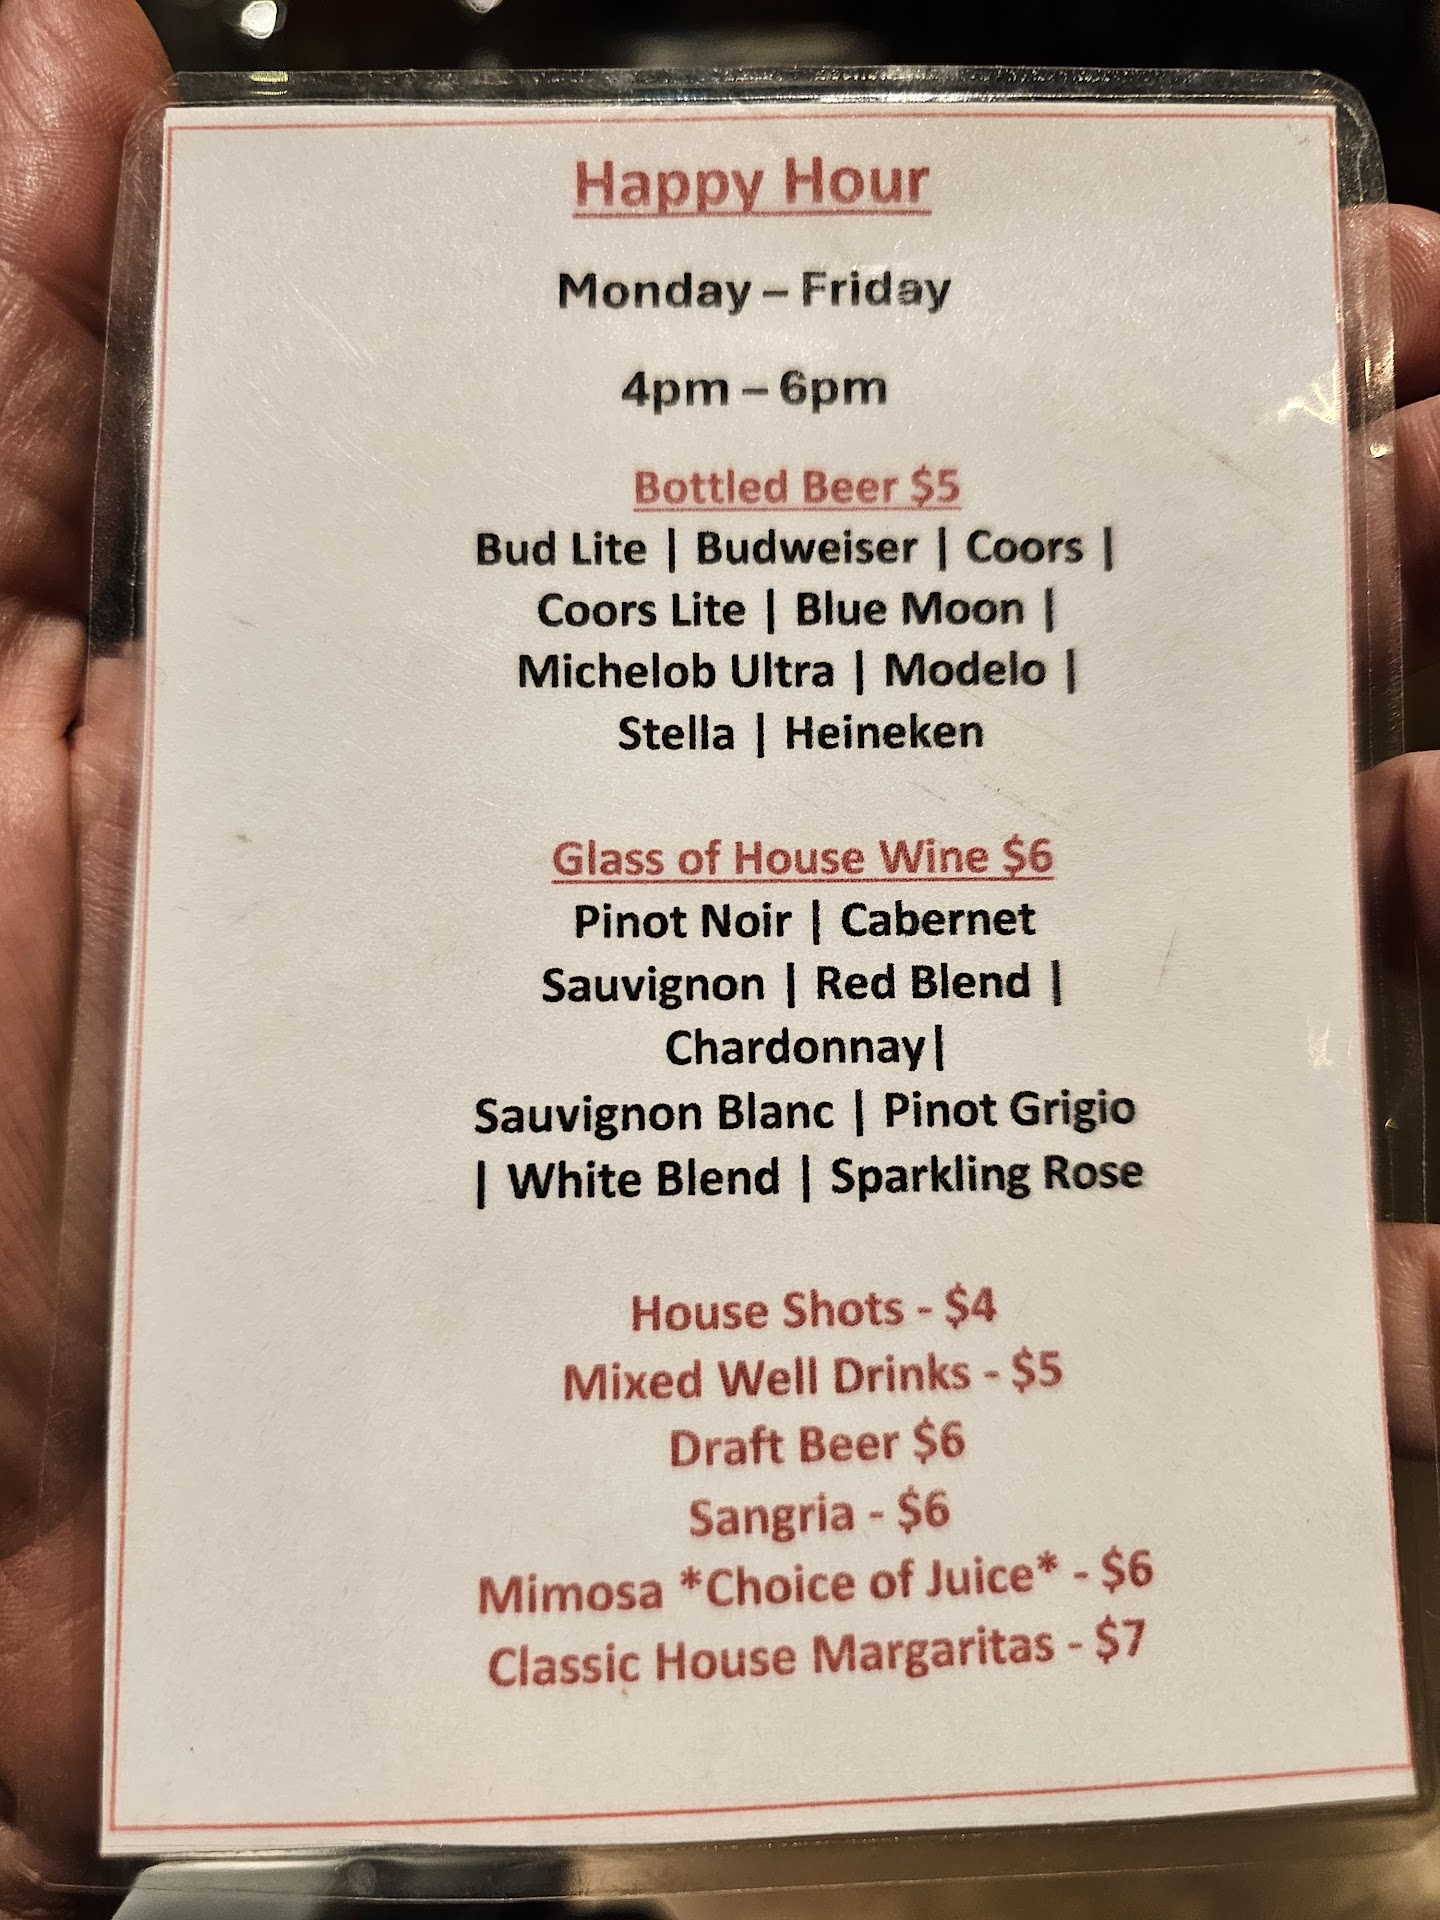 Happy Hour
Monday – Friday
4pm – 6pm
Bottled Beer $5
Bud Lite | Budweiser | Coors |
Coors Lite | Blue Moon |
Michelob Ultra | Modelo |
Stella | Heineken
Glass of House Wine $6
Pinot Noir | Cabernet
Sauvignon | Red Blend |
Chardonnay|
Sauvignon Blanc | Pinot Grigio
| White Blend | Sparkling Rose
House Shots - $4
Mixed Well Drinks - $5
Draft Beer $6
Sangria - $6
Mimosa *Choice of Juice* - $6
Classic House Margaritas - $7